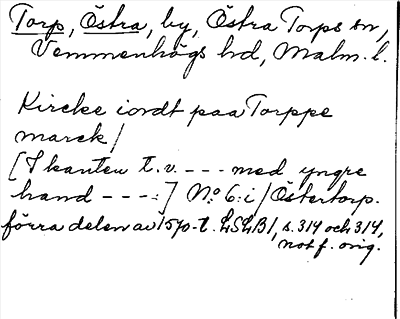 Torp, Östra, by, Östra Torps sn,
Vemmenhögs hd, Malm. l.
Kircke iordt paa Torppe
marck/
[I kanten t.v. --- med yngre
hand ----:] No: 6: i/Östertorp.
förra delen av 1570-t. LSLB1, s. 314 och 314,
not f. orig.